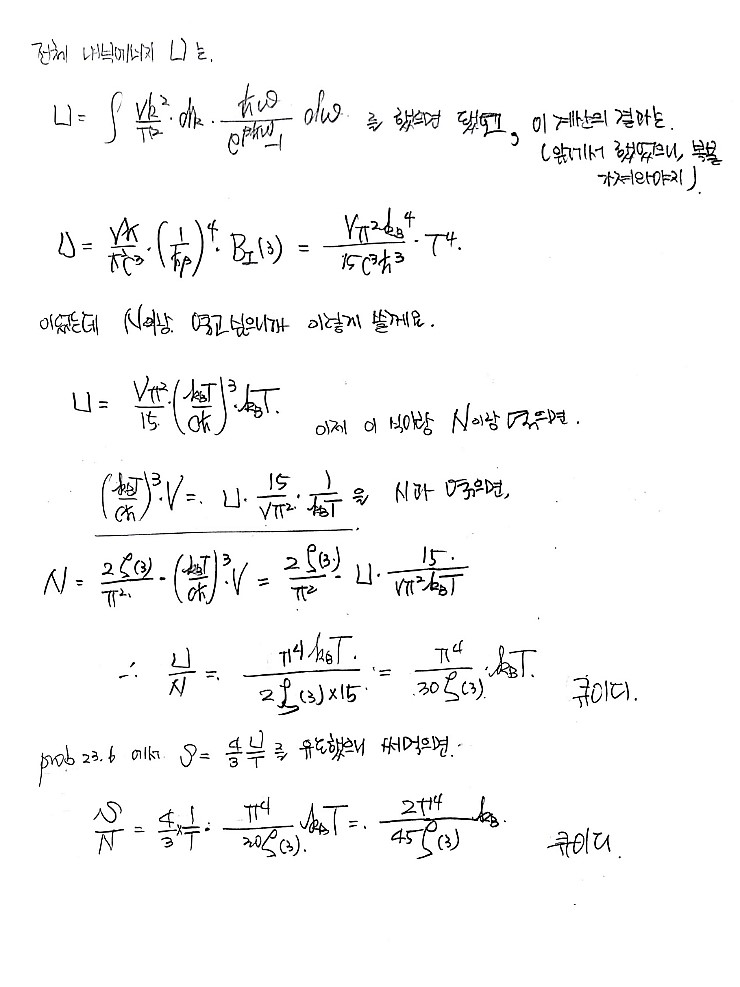 전체 내부에너지 U는,
U = ∫ Vk²/π² · dk · ℏω/(e^{βℏω}-1) dω 를 했으면 됐고, 이 계산의 결과는.
(앞에서 했었으니, 복붙
가져와야지)
U = Vℏ/π²c³ · (1/ℏβ)⁴ · B_I(3) = Vπ²k_B⁴/15c³ℏ³ · T⁴.
이었는데 N이랑 엮고 싶으니까 이렇게 쓸게요.
U = Vπ²/15 · (k_BT/cℏ)³ · k_BT. 이제 이 식이랑 N이랑 엮으면.
(k_BT/cℏ)³ · V = U · 15/Vπ² · 1/k_BT 을 식과 엮으면,
N = 2ζ(3)/π² · (k_BT/cℏ)³ · V = 2ζ(3)/π² · U · 15/Vπ²k_BT
∴ U/N = π⁴k_BT/2ζ(3)×15 = π⁴/30ζ(3) · k_BT. 큐이디.
prob 23.6 에서 S = 4/3 U/T 를 유도했으니 써먹으면.
S/N = 4/3 × 1/T · π⁴/30ζ(3) k_BT = 2π⁴/45ζ(3) k_B. 큐이디.